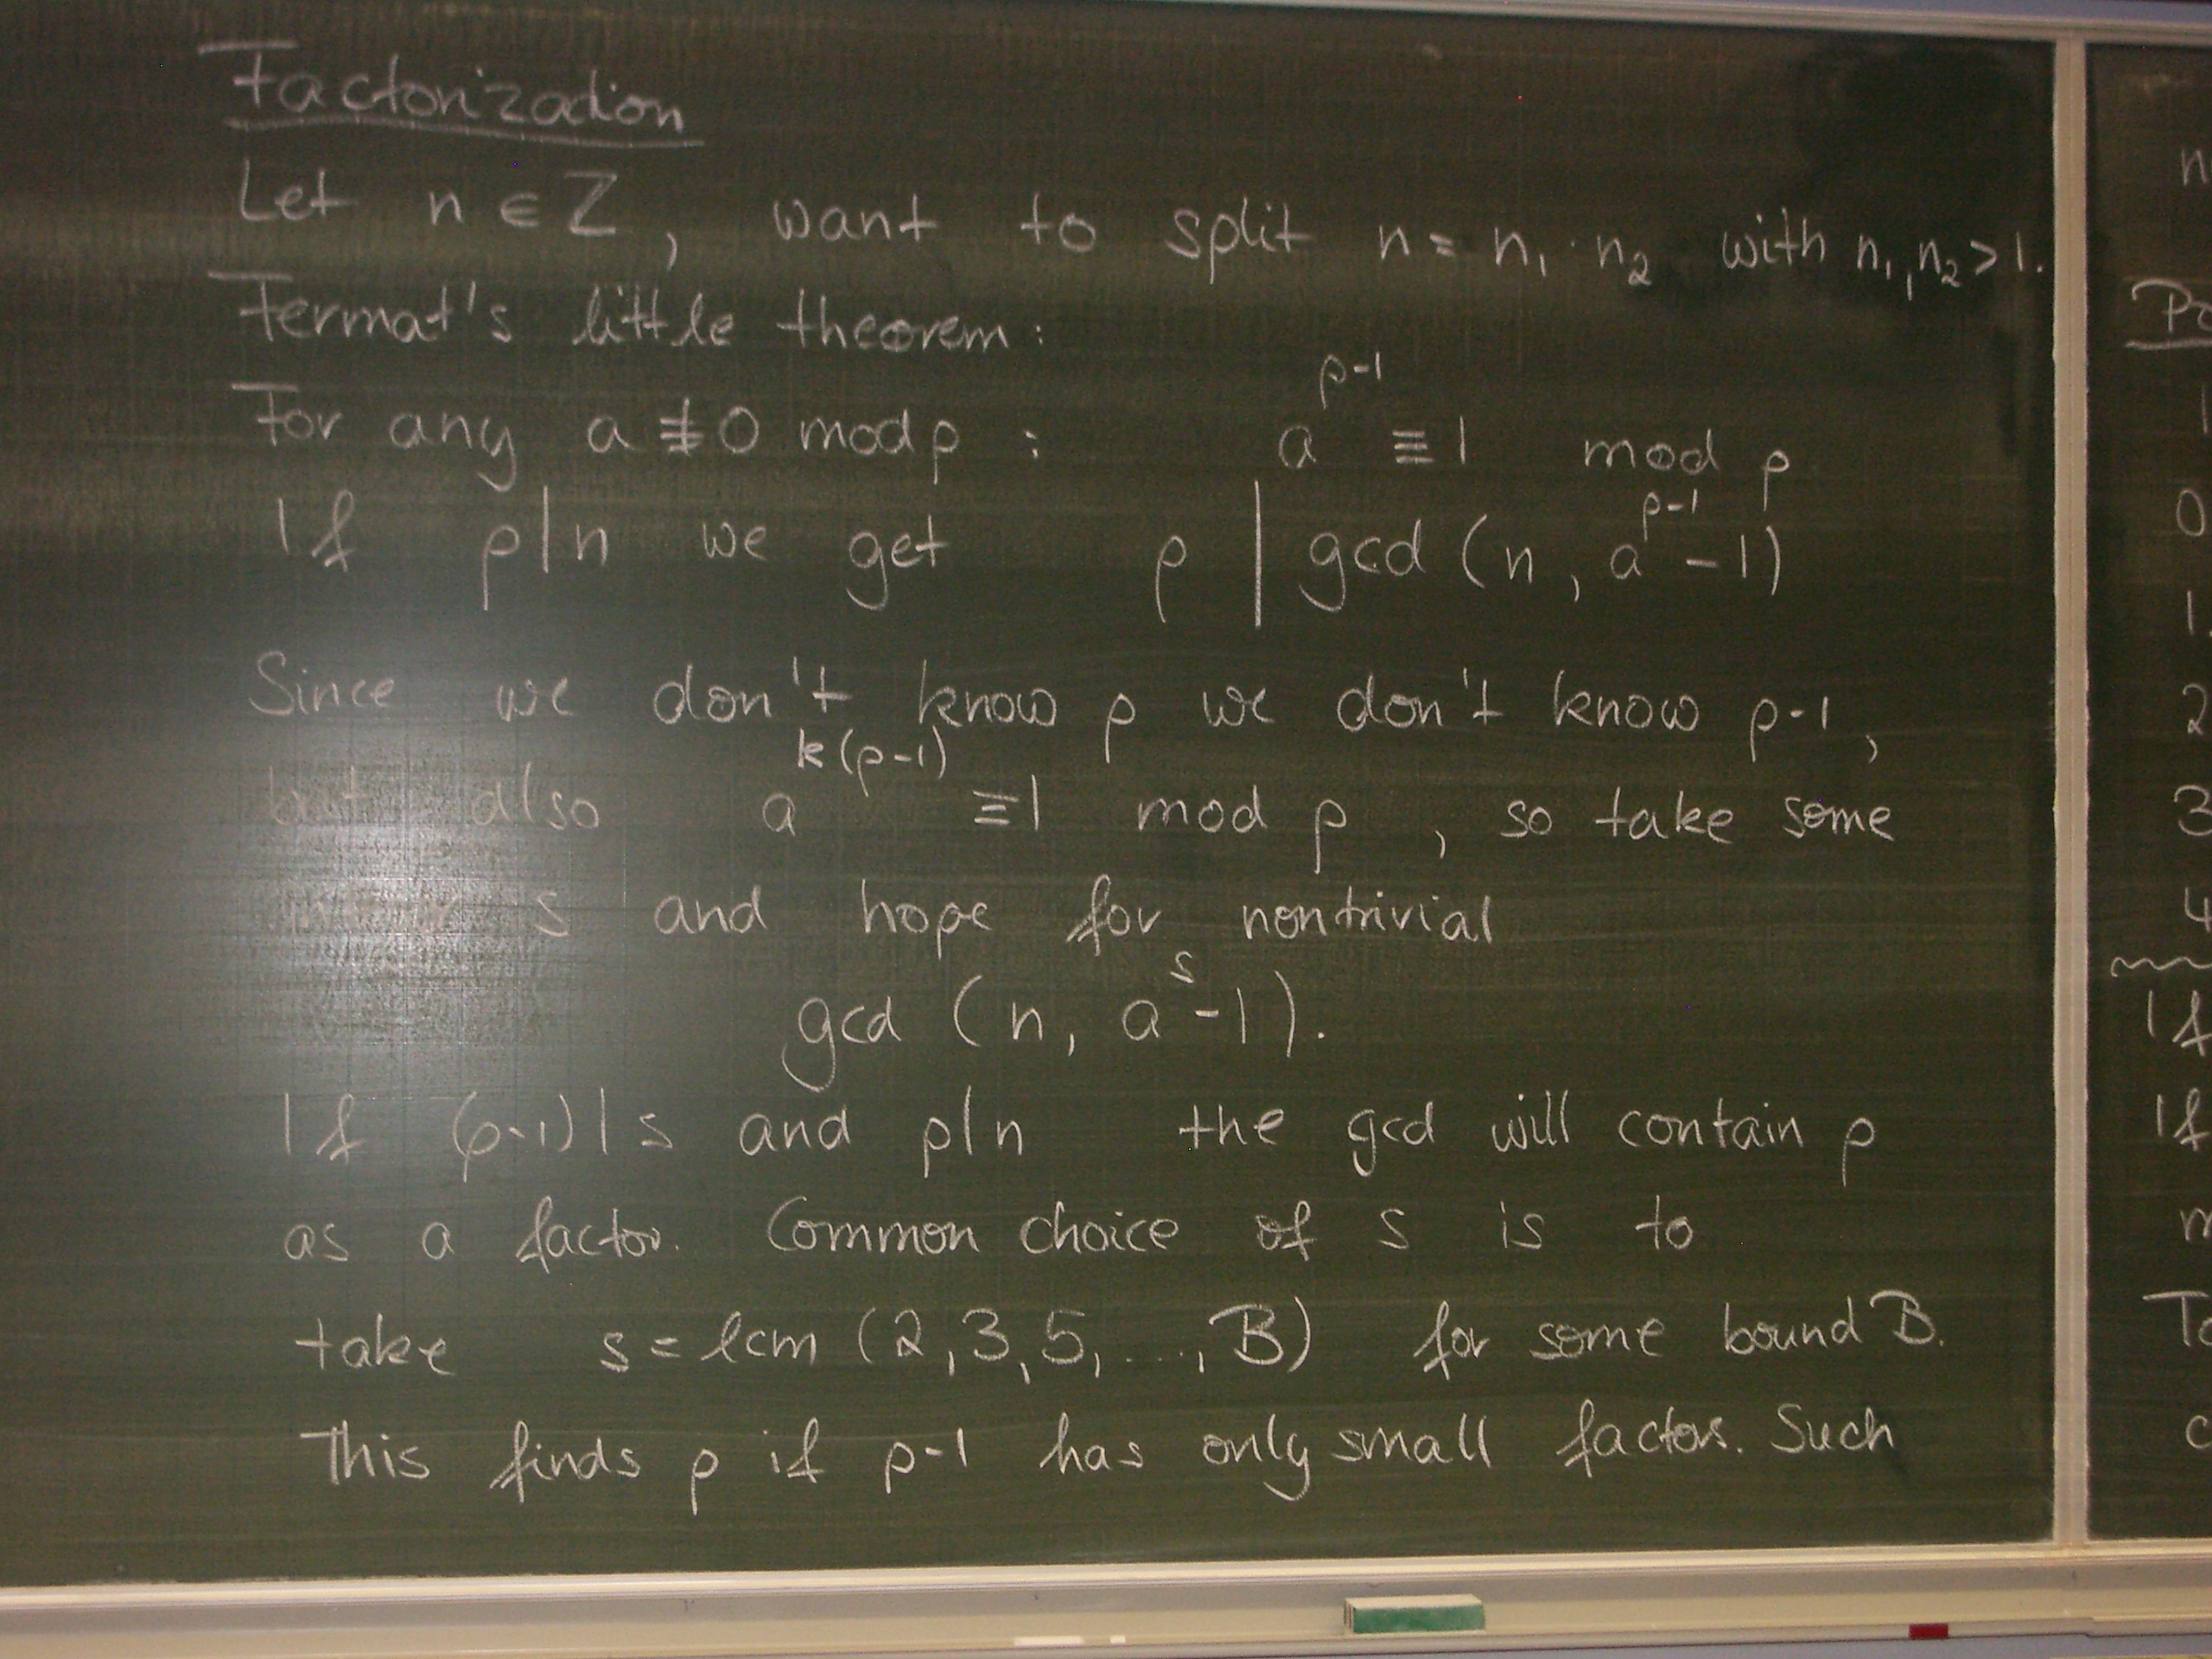 Factorization
Let n ∈ Z, want to split n = n₁ · n₂ with n₁, n₂ > 1.
Fermat's little theorem:
For any a ≢ 0 mod p : a^(p-1) ≡ 1 mod p
If p|n we get p | gcd (n, a^(p-1) - 1)
Since we don't know p we don't know p-1,
but also a^(k(p-1)) ≡ 1 mod p, so take some
s and hope for nontrivial
gcd (n, a^s - 1).
If (p-1)|s and p|n the gcd will contain p
as a factor. Common choice of s is to
take s = lcm (2, 3, 5, ..., B) for some bound B.
This finds p if p-1 has only small factors. Such
n
1
0
1
2
3
4
If
If
m